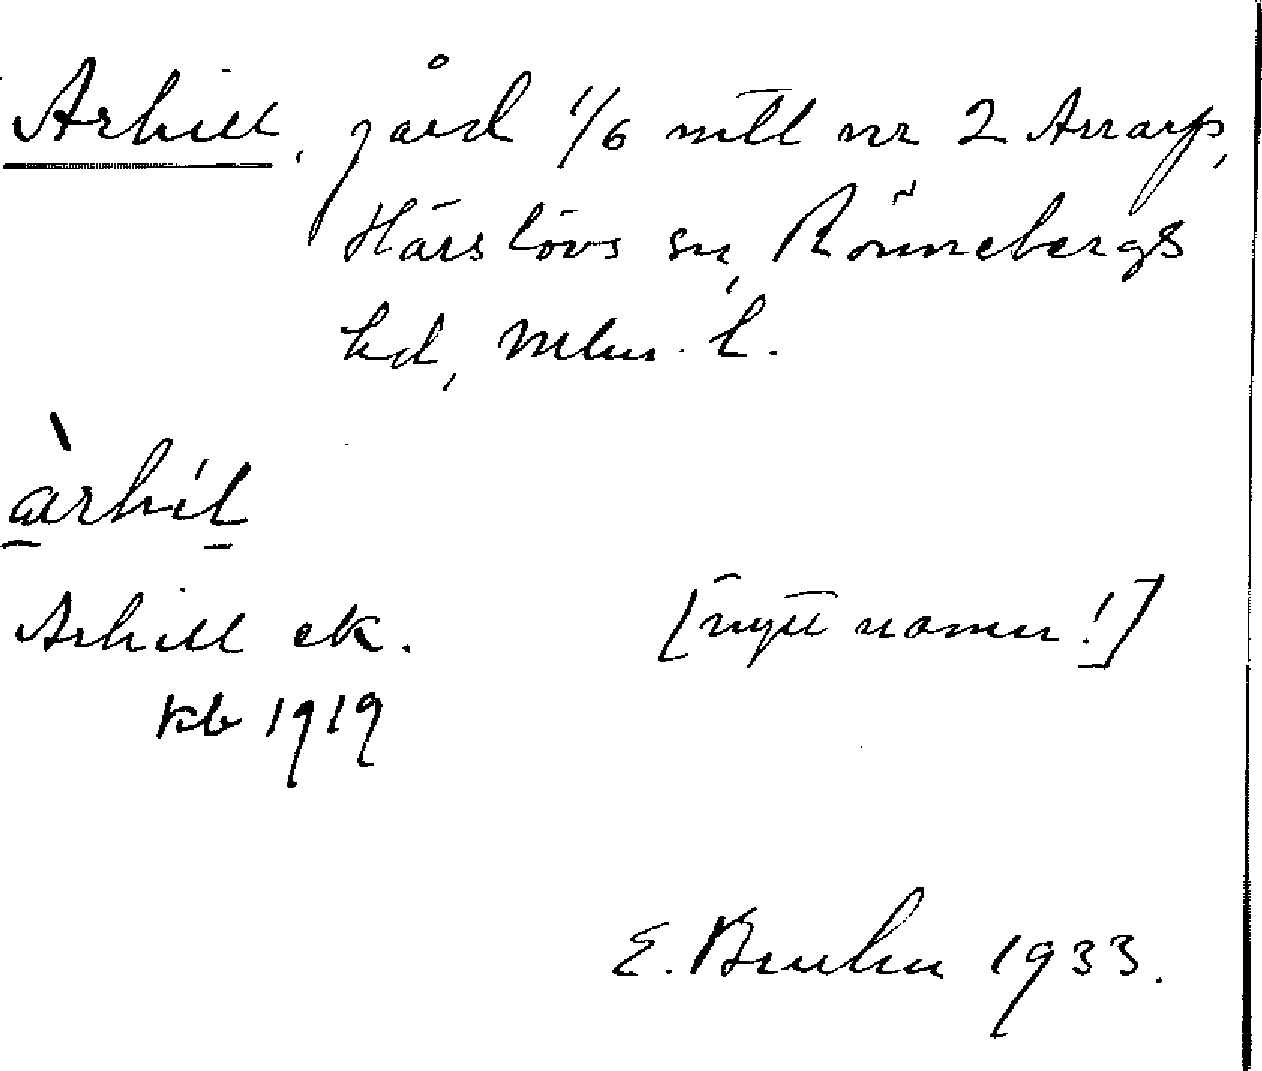 Arhill, gård 1/6 mtl nr 2 Arrarp,
Härslövs sn, Rönnebergs
hd, Mlm. l.
àrhíl
Arhill ek.
kb 1919
[nytt namn!]
E. Bruhn 1933.